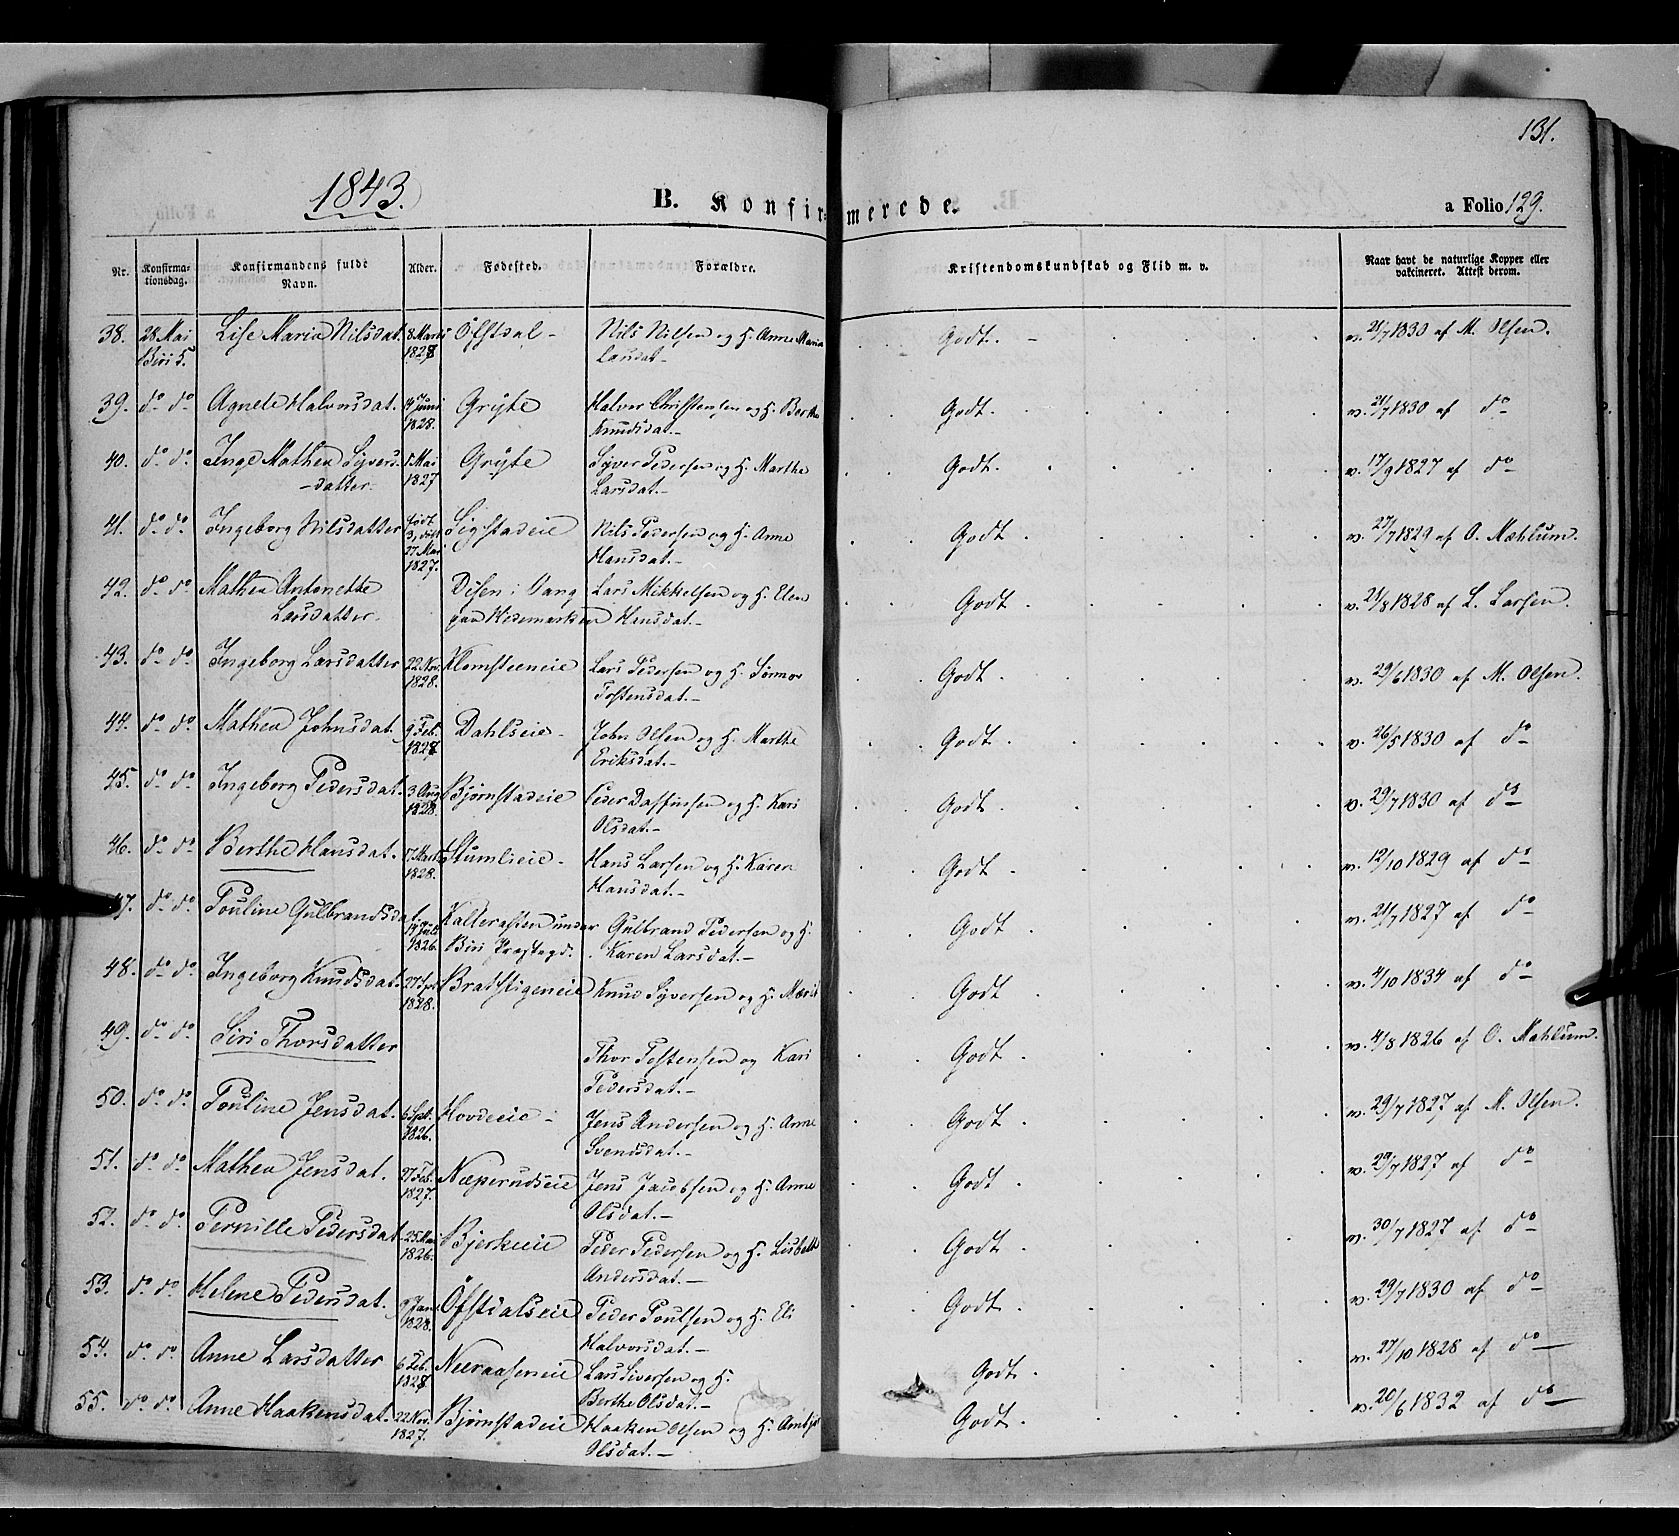 131.
1843.
B. Konfirmerede.
a Folio 129.
Nr.
Konfirma-
tionsdag.
Konfirmandens fulde
Navn.
Alder.
Fødested.
Forældre.
Kristendomskundskab og Flid m. v.
Naar havt de naturlige Kopper eller
vakcineret. Attest derom.
38. 28 Mai Lise Maria Nilsdat. 8 Marts Öfstdal - Nils Nilsen og H. Anne Maria Godt. v. 21/7 1830 af M. Olsen.
Biri K. 1828 Larsdat.-
39. do do Agnete Halvorsdat. Juni Gryte Halvor Christensen og H. Berthe Godt. v. 21/7 1830 af do
1828. Knudsdat.-
40. do do Inge Mathea Syvers- Mai Gryte Syver Pedersen og H. Marthe Godt. v. 17/9 1827 af do
-datter. 1827 Larsdat.-
41. do do Ingeborg Nilsdatter født Sigstadeie Nils Pedersen og H. Anne Godt. v. 27/7 1829 af O. Mæhlum.
27 Mai Hansdat.-
1827.
42. do do Mathea Antonette Disen i Vang Lars Mikkelsen og H. Elen Godt. v. 21/8 1828 af L. Larsen.
Larsdatter. paa Hedemarken Hansdat.-
43. do do Ingeborg Larsdatter 22 Nov. Klomsteeneie Lars Pedersen og H. Godt. v. 29/6 1830 af M. Olsen.
1828. Tostensdat.-
44. do do Mathea Johnsdat. 9 Feb. Dahlseie - John Olsen og H. Marthe Godt. v. 26/5 1830 af do
1828. Eriksdat.-
45. do do Ingeborg Pedersdat. 3 Aug Bjørnstadeie Peder Daffinsen og H. Kari Godt. v. 29/7 1830 af do
1828. Olsdat.-
46. do do Berthe Hansdat. Marts Stumlieie - Hans Larsen og H. Karen Godt. v. 12/10 1829 af do
1828. Hansdat.-
47. do do Pouline Gulbrandsdat. Juli under Gulbrand Pedersen og H. Godt. v. 21/7 1827 af do
1826. Biri Præstegd. Karen Larsdat.-
48. do do Ingeborg Knudsdat. 27 Bratstigeneie Knud Syversen og H. Marit Godt. v. 4/10 1834 af do
1828.
49. do do Siri Thorsdatter Thor Tostensen og Kari Godt. v. 4/8 1826 af O. Mæhlum.
Pedersdat.-
50. do do Pouline Jensdat. Hovdeeie - Jens Andersen og H. Anne Godt. v. 29/7 1827 af M. Olsen.
1826. Svendsdat.-
51. do do Mathea Jensdat. 27 Feb. Næperudseie Jens Jacobsen og H. Anne Godt. v. 29/7 1827 af do
1827. Olsdat.-
52. do do Pernille Pedersdat. 25 Mai Bjerkeeie Peder Pedersen og H. Lisbeth Godt. v. 30/7 1827 af do
1826. Andersdat.-
53. do do Helene Pedersdat. 9 Jan. Öfstdalseie Peder Poulsen og H. Eli Godt. v. 29/7 1830 af do
1828. Halvorsdat.-
54. do do Anne Larsdatter 6 Feb. Neeraaseneie Lars Siversen og H. Godt. v. 27/10 1828 af do
1828 Berthe Olsdat.-
55. do do Anne Haakensdat. 22 Nov. Bjørnstadeie Haaken Olsen og H. Godt. v. 20/6 1832 af do
1827. Olsdat.-